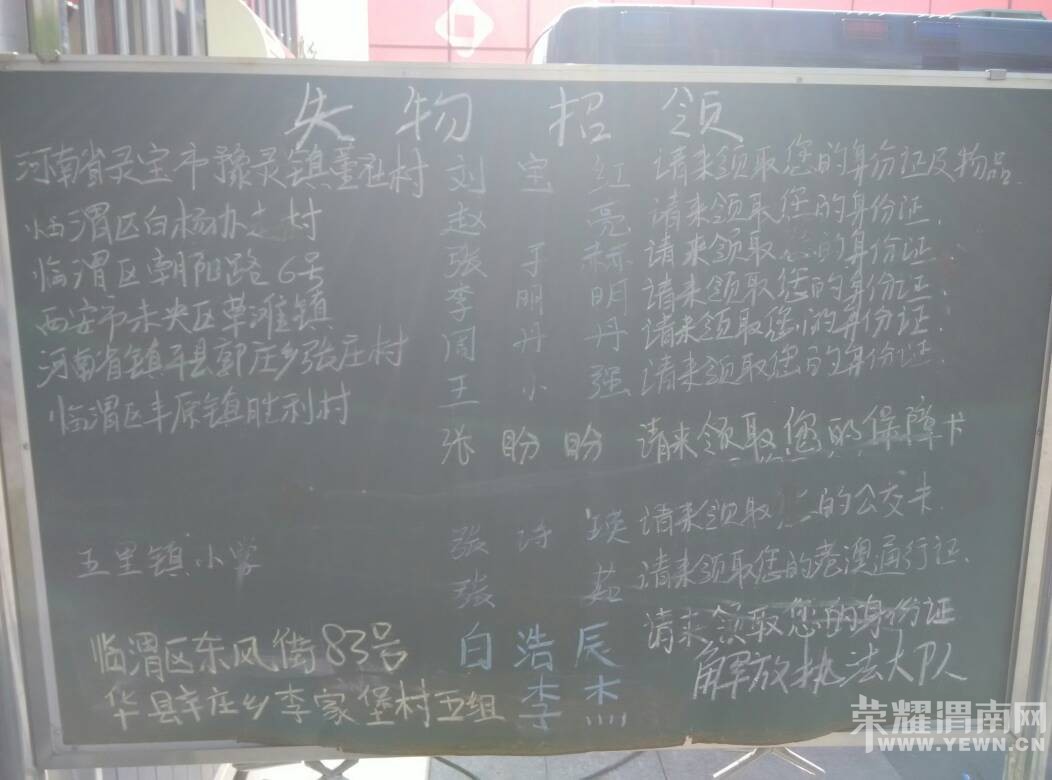 失物招领
河南省灵宝市豫灵镇董社村 刘宝红 请来领取您的身份证及物品.
临渭区白杨办 村 赵亮 请来领取您的身份证.
临渭区朝阳路6号 张于赫 请来领取 的身份证.
西安市未央区草滩镇 李丽明 请来领取您的身份证.
河南省镇平县郭庄乡张庄村 周丹丹 请来领取您的身份证.
临渭区丰原镇胜利村 王小强 请来领取您的身份证.
张盼盼 请来领取您的保障卡
张诗瑛 请来领取 的公交卡.
五里镇小学 张茹 请来领取您的港澳通行证.
临渭区东风街83号 白浩辰 请来领取您的身份证
华县辛庄乡李家堡村五组 李杰
解放执法大队
荣耀渭南网
WWW.YEWN.CN